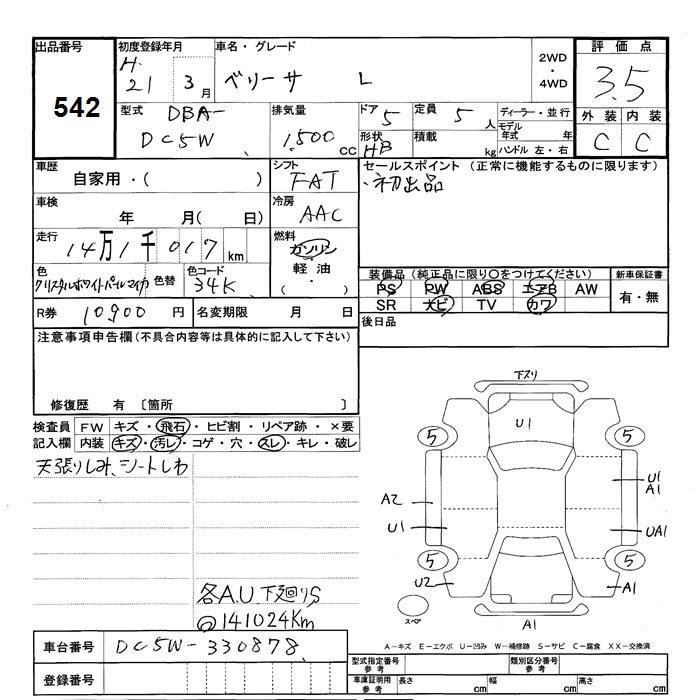 出品番号
542
初度登録年月
H. 21 3月
車名・グレード
ベリーサ L
2WD
・
4WD
評価点
3.5
外装 内装
C C
型式 DBA-
DC5W
排気量
1,500 CC
ドア 5
形状 HB
定員 5人
積載 kg
ディーラー・並行
モデル年式 年
ハンドル 左・右
車歴
自家用・( )
シフト
FAT
セールスポイント (正常に機能するものに限ります)
・初出品
車検
年 月( 日)
冷房
AAC
走行
14万1千017km
燃料
ガソリン
軽油
( ・ )
色
クリスタルホワイトパールマイカ
色替
色コード
34K
装備品 (純正品に限り○をつけてください)
PS PW ABS エアB AW
SR ナビ TV カワ
新車保証書
有・無
R券 10900円
名変期限 月 日
後日品
注意事項申告欄(不具合内容等は具体的に記入して下さい)
修復歴 有 〔箇所 〕
検査員 FW キズ・飛石・ヒビ割・リペア跡・×要
記入欄 内装 キズ・汚レ・コゲ・穴・スレ・キレ・破レ
天張りしみ、シートしわ
各A.U.下廻りS
@141024Km
下スリ
U1
5
5
U1
A1
A2
U1
UA1
5
5
U2
A1
スペア
A1
車台番号 DC5W-330878
登録番号
A-キズ E-エクボ U-凹み W-補修跡 S-サビ C-腐食 XX-交換済
型式指定番号
参考
類別区分番号
参考
車庫証明用
参考
長さ cm
幅 cm
高さ cm